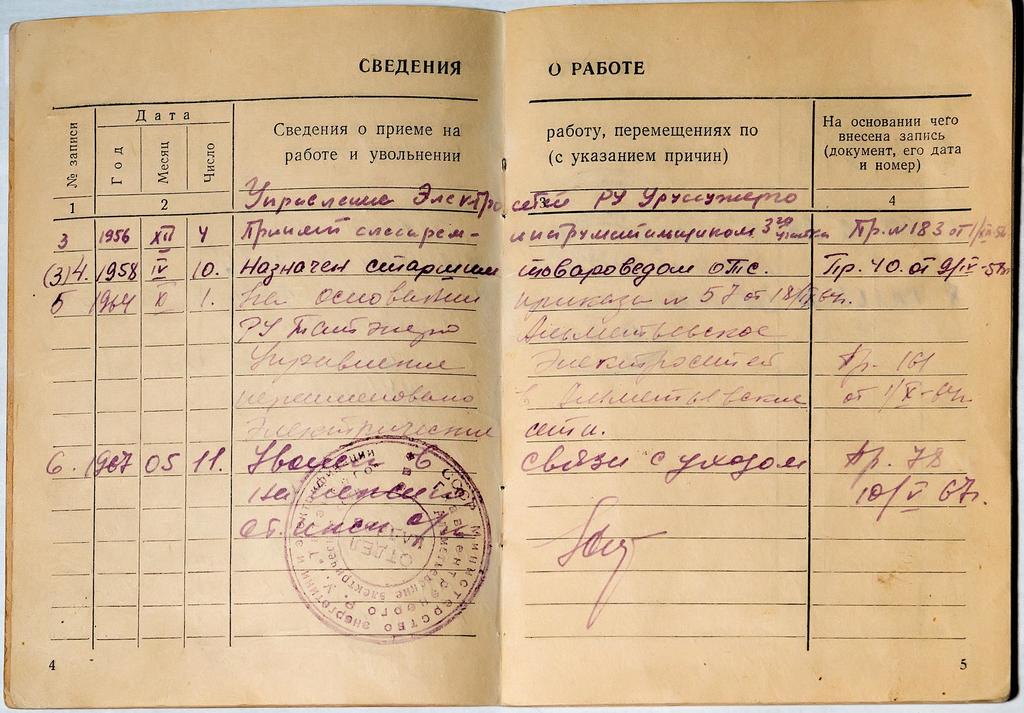 СВЕДЕНИЯ О РАБОТЕ
№ записи
Дата
Год
Месяц
Число
Сведения о приеме на работу, перемещениях по
работе и увольнении (с указанием причин)
На основании чего
внесена запись
(документ, его дата
и номер)
1 2 3 4
Управление Электросетей РУ
3 1956 XII 4 Принят слесарем-инструментальщиком 3го участка Пр. № 183 от
(3) 4. 1958 IV 10. Назначен старшим товароведом ОТС. Пр. 40. от 9/IV-58
5 1964 X 1. На основании приказа № 57 от
РУ Татэнерго Альметьевское
Управление Электросетей Пр. 161
переименовано в Альметьевские от 1/X-64г
Электрические сети.
6. 1967 05 11. Уволен в связи с уходом Пр. 78
на пенсию 10/V 67г.
от
СССР МИНИСТЕРСТВО ЭНЕРГЕТИКИ И ЭЛЕКТРИФИКАЦИИ
ОТДЕЛ
4
5